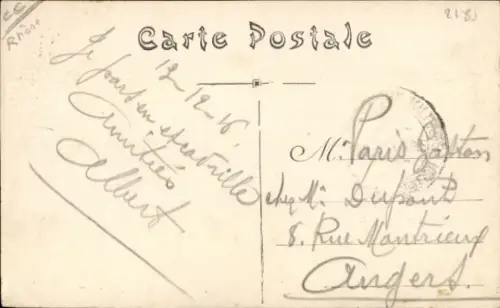 Rhône
Carte Postale
12-12-16
Je pars en escadrille
Amitiés
Albert
Mr. Paris Gaston
chez Mr Dupont
8. Rue Montrieux
Angers.